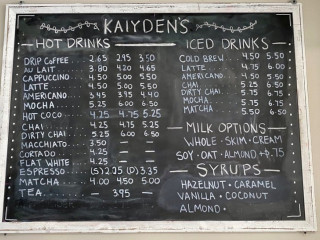 KAIYDEN'S
HOT DRINKS
DRIP COFFEE 2.65 2.95 3.50
AU LAIT 3.80 4.20 4.65
CAPPUCCINO 4.50 5.00 5.50
LATTE 4.50 5.00 5.50
AMERICANO 3.45 3.95 4.40
MOCHA 5.25 6.00 6.50
HOT COCO 4.25 4.75 5.25
CHAI 4.25 4.75 5.25
DIRTY CHAI 5.25 6.00 6.50
MACCHIATO 3.50 — —
CORTADO 4.25 — —
FLAT WHITE 4.25 — —
ESPRESSO (S) 2.25 (D) 3.35
MATCHA 4.00 4.50 5.00
TEA — 3.95 —
ICED DRINKS
COLD BREW 4.50 5.50
LATTE 4.75 6.00
AMERICANO 4.50 5.50
CHAI
DIRTY CHAI 5.75 6.75
MOCHA 5.75 6.50
MATCHA
MILK OPTIONS
WHOLE · SKIM · CREAM
SOY · OAT · ALMOND +$.75
SYRUPS
HAZELNUT · CARAMEL
VANILLA · COCONUT
ALMOND ·